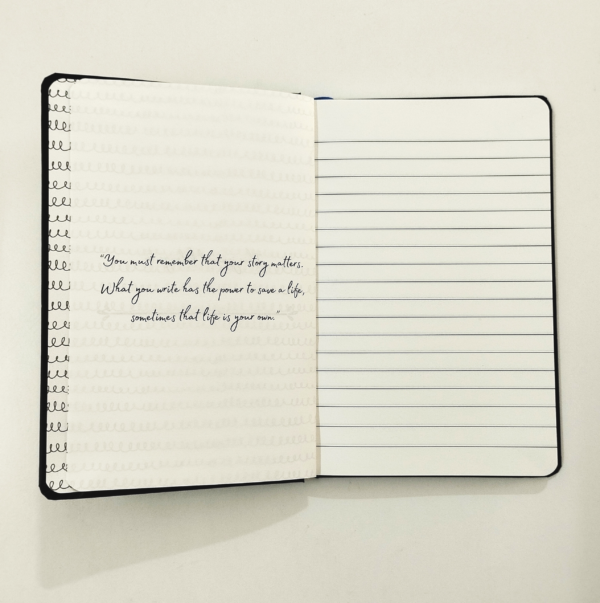 "You must remember that your story matters.
What you write has the power to save a life,
sometimes that life is your own."